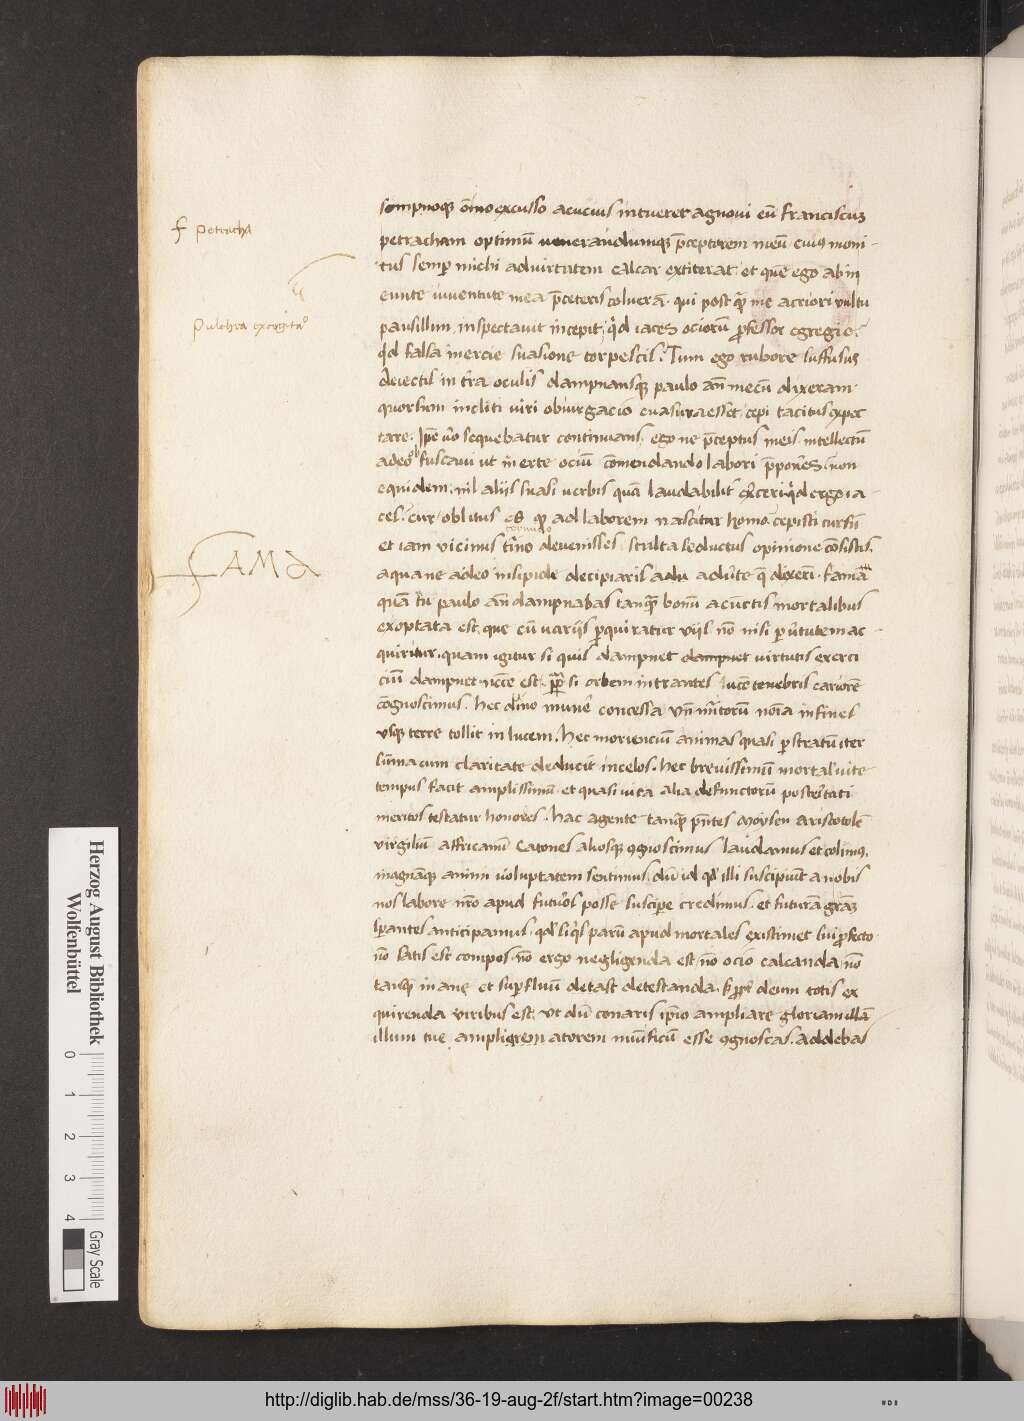 sompnoqꝫ o̅i̅no excusso acucius intuerer agnoui eu̅ franciscuꝫ
f petracha
petracham optimu̅ uenerandumqꝫ p̅ceptorem meu̅ cuiꝰ moni-
tus semp̲ michi ad uirtutem calcar extiterat et que̅ ego ab in
eunte iuuentute mea p̅ ceteris coluera̅. qui postq̅ me acriori uultu
Pulchra excogitaᵒ
pausillum inspectauit incepit, qͥd iaces ociorū p̲fessor egregie?
qͥd falsa inercie suasione torpescis? Tum ego rubore suffusus
deiectis in tr̅a oculis dampnansqꝫ paulo an̅ mecu̅ dixeram.
quorsum incliti uiri obiurgacio euasura esset, cepi tacitus expec
tare. Ip̅e u̅o sequebatur continuans. ego ne p̅ceptus meis intellectu̅
adeo fuscaui ut inerte ociu̅ co̅mendando labori p̅pon̅es, non
equidem, nil aliis suasi uerbis qua̅ laudabilit̅ exerceri qͥd ergo ia-
ces? cur oblitus es qꝫ ad laborem nascitur homo. cepisti cursu̅
et iam uicinus t̅mi̅o deuenisses stulta seductus opinione co̅sistis.
FAMA
a qua ne adeo insipide decipiaris adu̅te q̅ dixeri̅. fama̅
qua̅ tu̅ paulo an̅ dampnabas tanq̅ bonu̅ a cu̅ctis mortalibus
exoptata est, que cu̅ uariis p̲quiratur uiis no̅ nisi p̲ u̅tutem ac-
quiritur, quam igitur si quis dampnet dampnet uirtutis exerci
ciu̅ dampnet n̅cc̅e est, si orbem intrantes luce̅ tenebris cariore̅
co̅gnoscimus. hec di̅no mune̅ concessa
usqꝫ terre tollit in lucem. hec moriencium animas quasi p̲ stratu̅ iter
su̅ma cum claritate deducit in celos. hec breuissimu̅ mortal̅ uite
tempus facit amplissimu̅ et quasi uita alia defunctoru̅ post̅itati
meritos testatur honores. hac agente tanq̅ p̅ntes Moysen aristotole̅
uirgiliu̅ affricanu̅ Catones aliosqꝫ ꝯgnoscimus laudamus et colimꝰ.
magna̅qꝫ animi uoluptatem sentimus, du̅ id qd̅ illi suscipiu̅t a nobis
nos labore nr̅o apud futu̅os posse suscip̲e credimus. et futura̅ gra̅ꝫ
sp̲antes anticipamus. paru̅ apud mortales existimet sui p̲fecto
no̅ satis est compos. no̅ ergo negligenda est no̅ ocio calcanda no̅
tanq̅ inane et sup̲fluu̅ detestanda. deum totis ex
quirenda uiribus est, ut du̅ conaris ip̅ius ampliare gloriam illa̅
illum tue amplificatorem munificu̅ esse ꝯgnoscas. addebas
Herzog August Bibliothek
Wolfenbüttel
0 1 2 3 4
Gray Scale
http://diglib.hab.de/mss/36-19-aug-2f/start.htm?image=00238